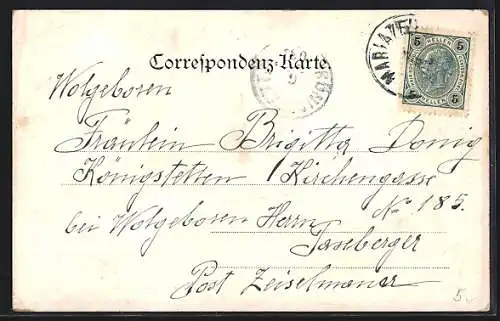 Correspondenz-Karte.
MARIAZELL
5 HELLER 5
5 HELLER 5
Wolgeboren
Fräulein Brigitta Donig
Königstetten Kirchengasse
No 185.
bei Wolgeboren Herrn
Taseberger
Post Zeiselmauer
5.